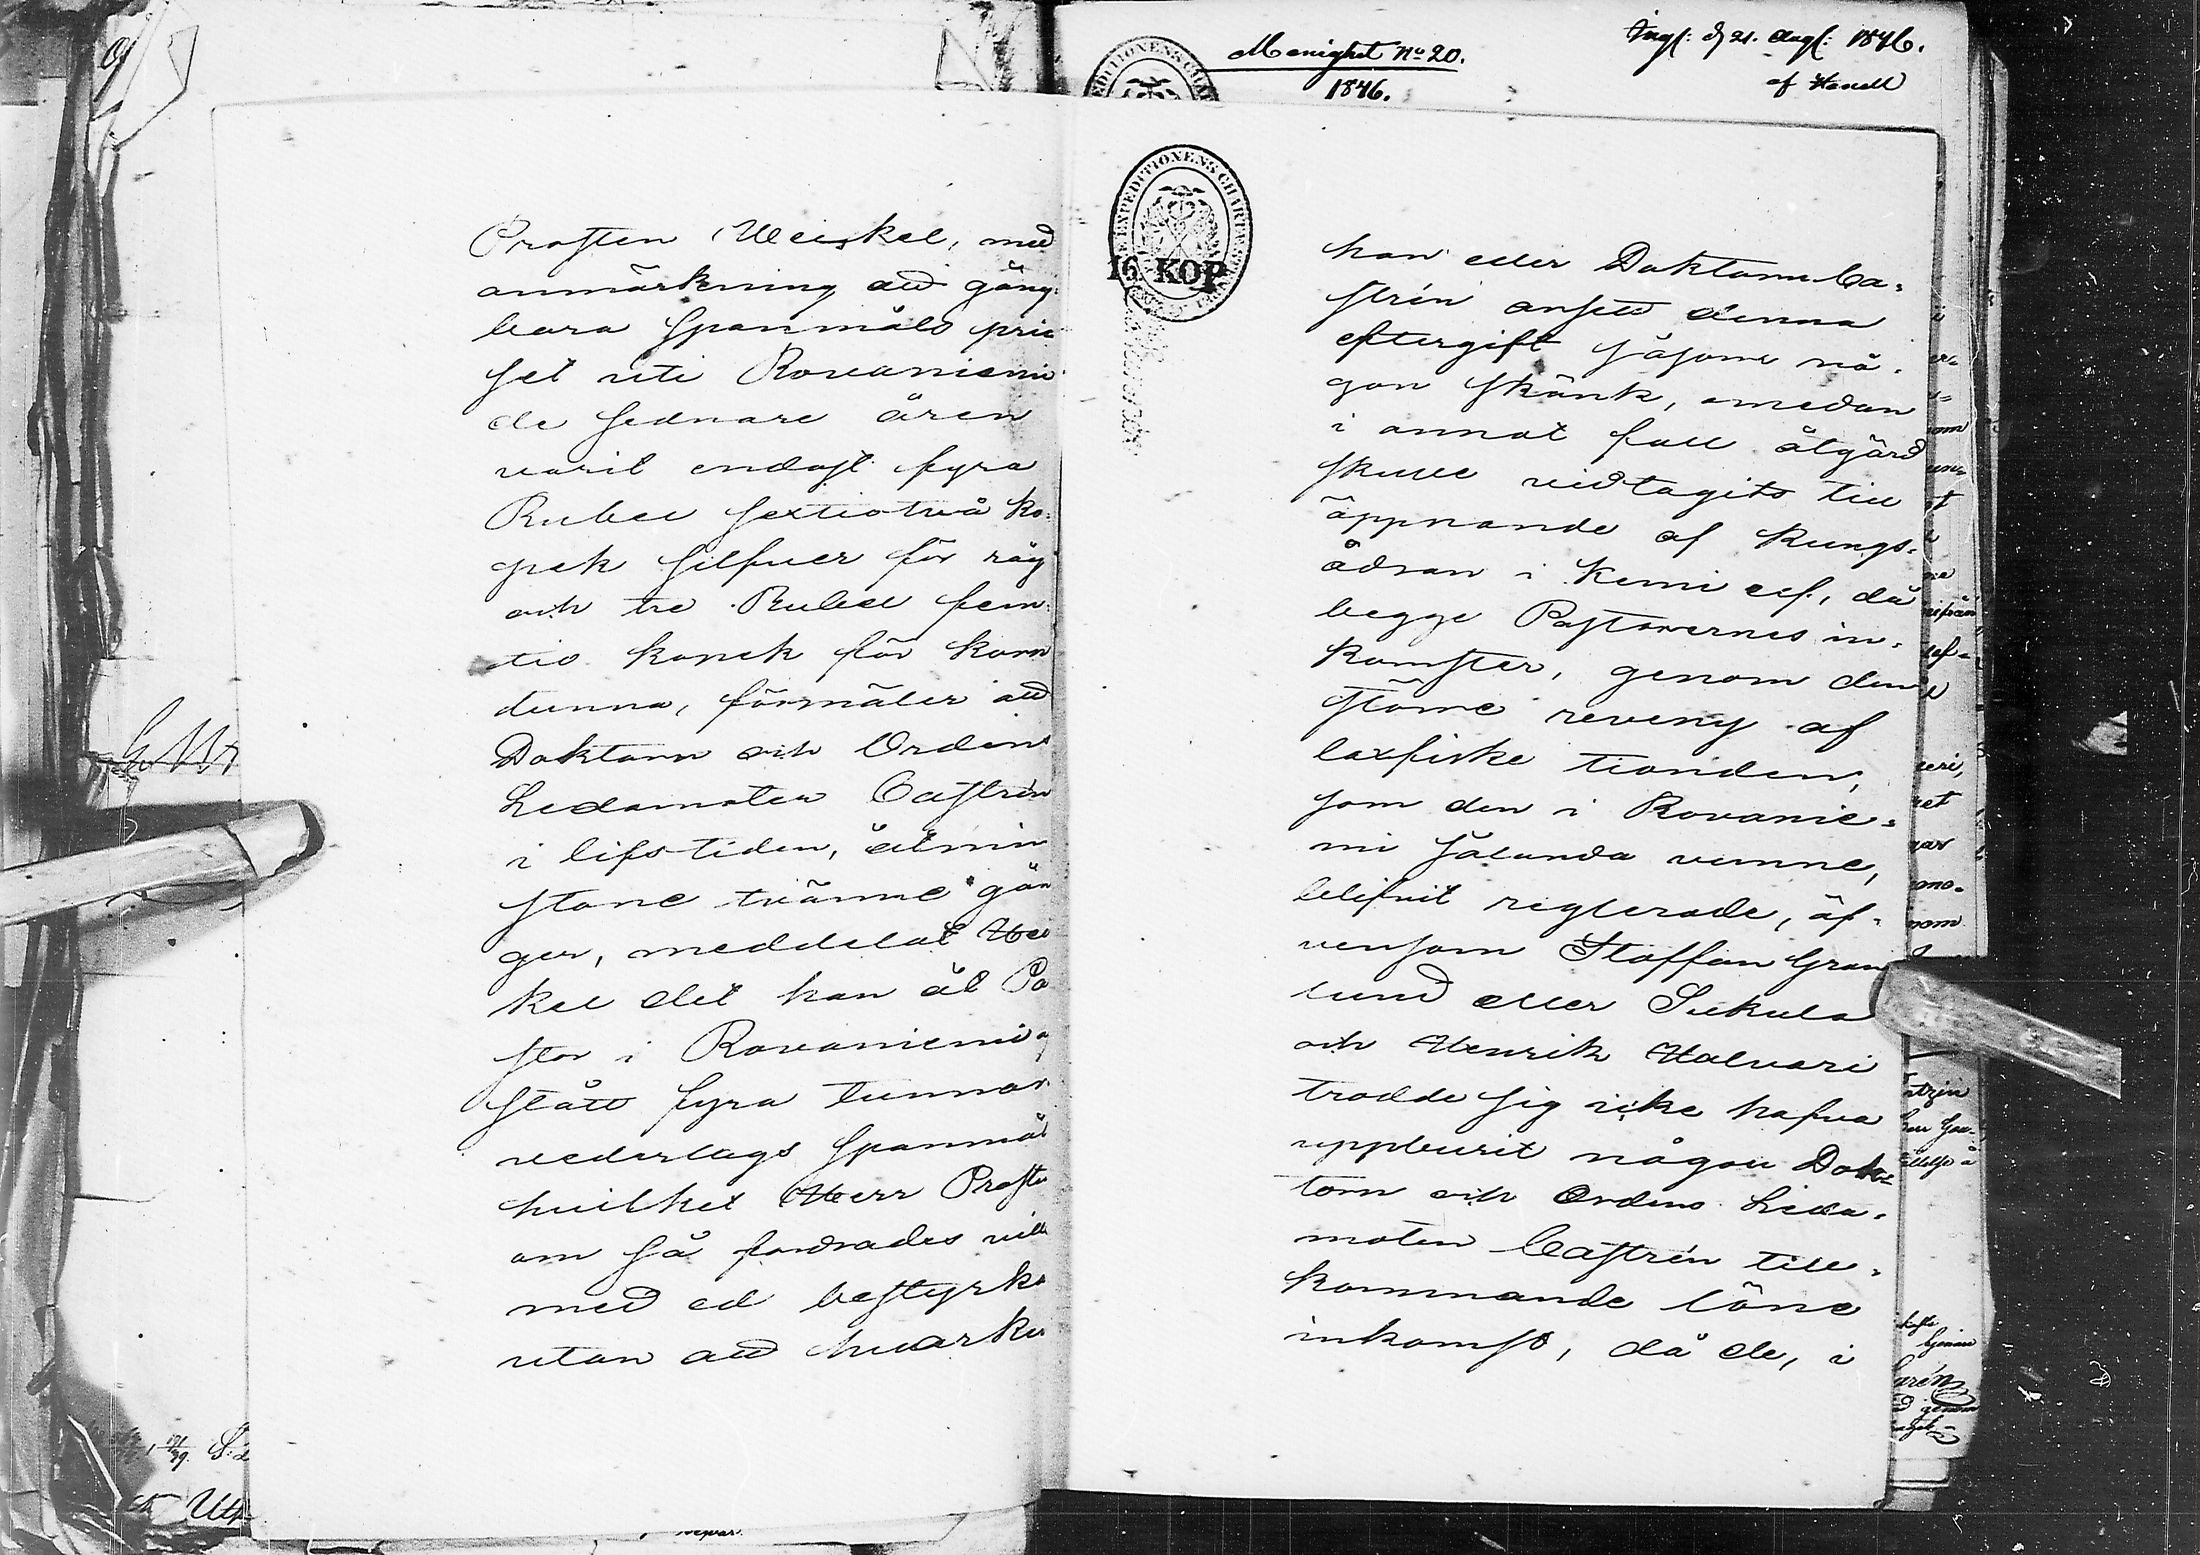 Menighet No 20.
1846.
Ingf: d 21. Augf: 1846.
af
Prosten Heickel, med
anmärkning att gång-
bara spanmåls pri
set uti Rovaniemi
de sednare åren
varit endast fyra
Rubel sextiotvå ko-
pek silfver för råg
och tre Rubel fem-
tio kopek för korn
tunna, förmäler att
Doktorn och Ordens
Ledamoten Castrén
i lifstiden, åtmin
stone tvänne gån
ger, meddelat Hei
kel det han åt Pa
stor i Rovaniemi a
stått fyra tunnor
vederlags spanmål
hvilket Herr Proste
om så fordrades vill
med ed bestyrka
utan att hvarke
16 KOP
han eller Doktorn Ca-
strén ansett denna
eftergift såsom nå-
gon skänk, emedan
i annat fall åtgärd
skulle vidtagits till
öppnande af Kungs-
ådran i Kemi elf, då
begge Pastorernes in-
komster, genom den
större reveny af
laxfiske tionden,
som den i Rovanie-
mi sålunda vunne,
blifvit reglerade, äf-
vensom Staffan Gran
lund eller Sukula
och Henrik Halvari
trodde sig icke hafva
uppburit någon Dok-
torn och Ordens Leda-
moten Castrén till-
kommande löne
inkomst, då de, i